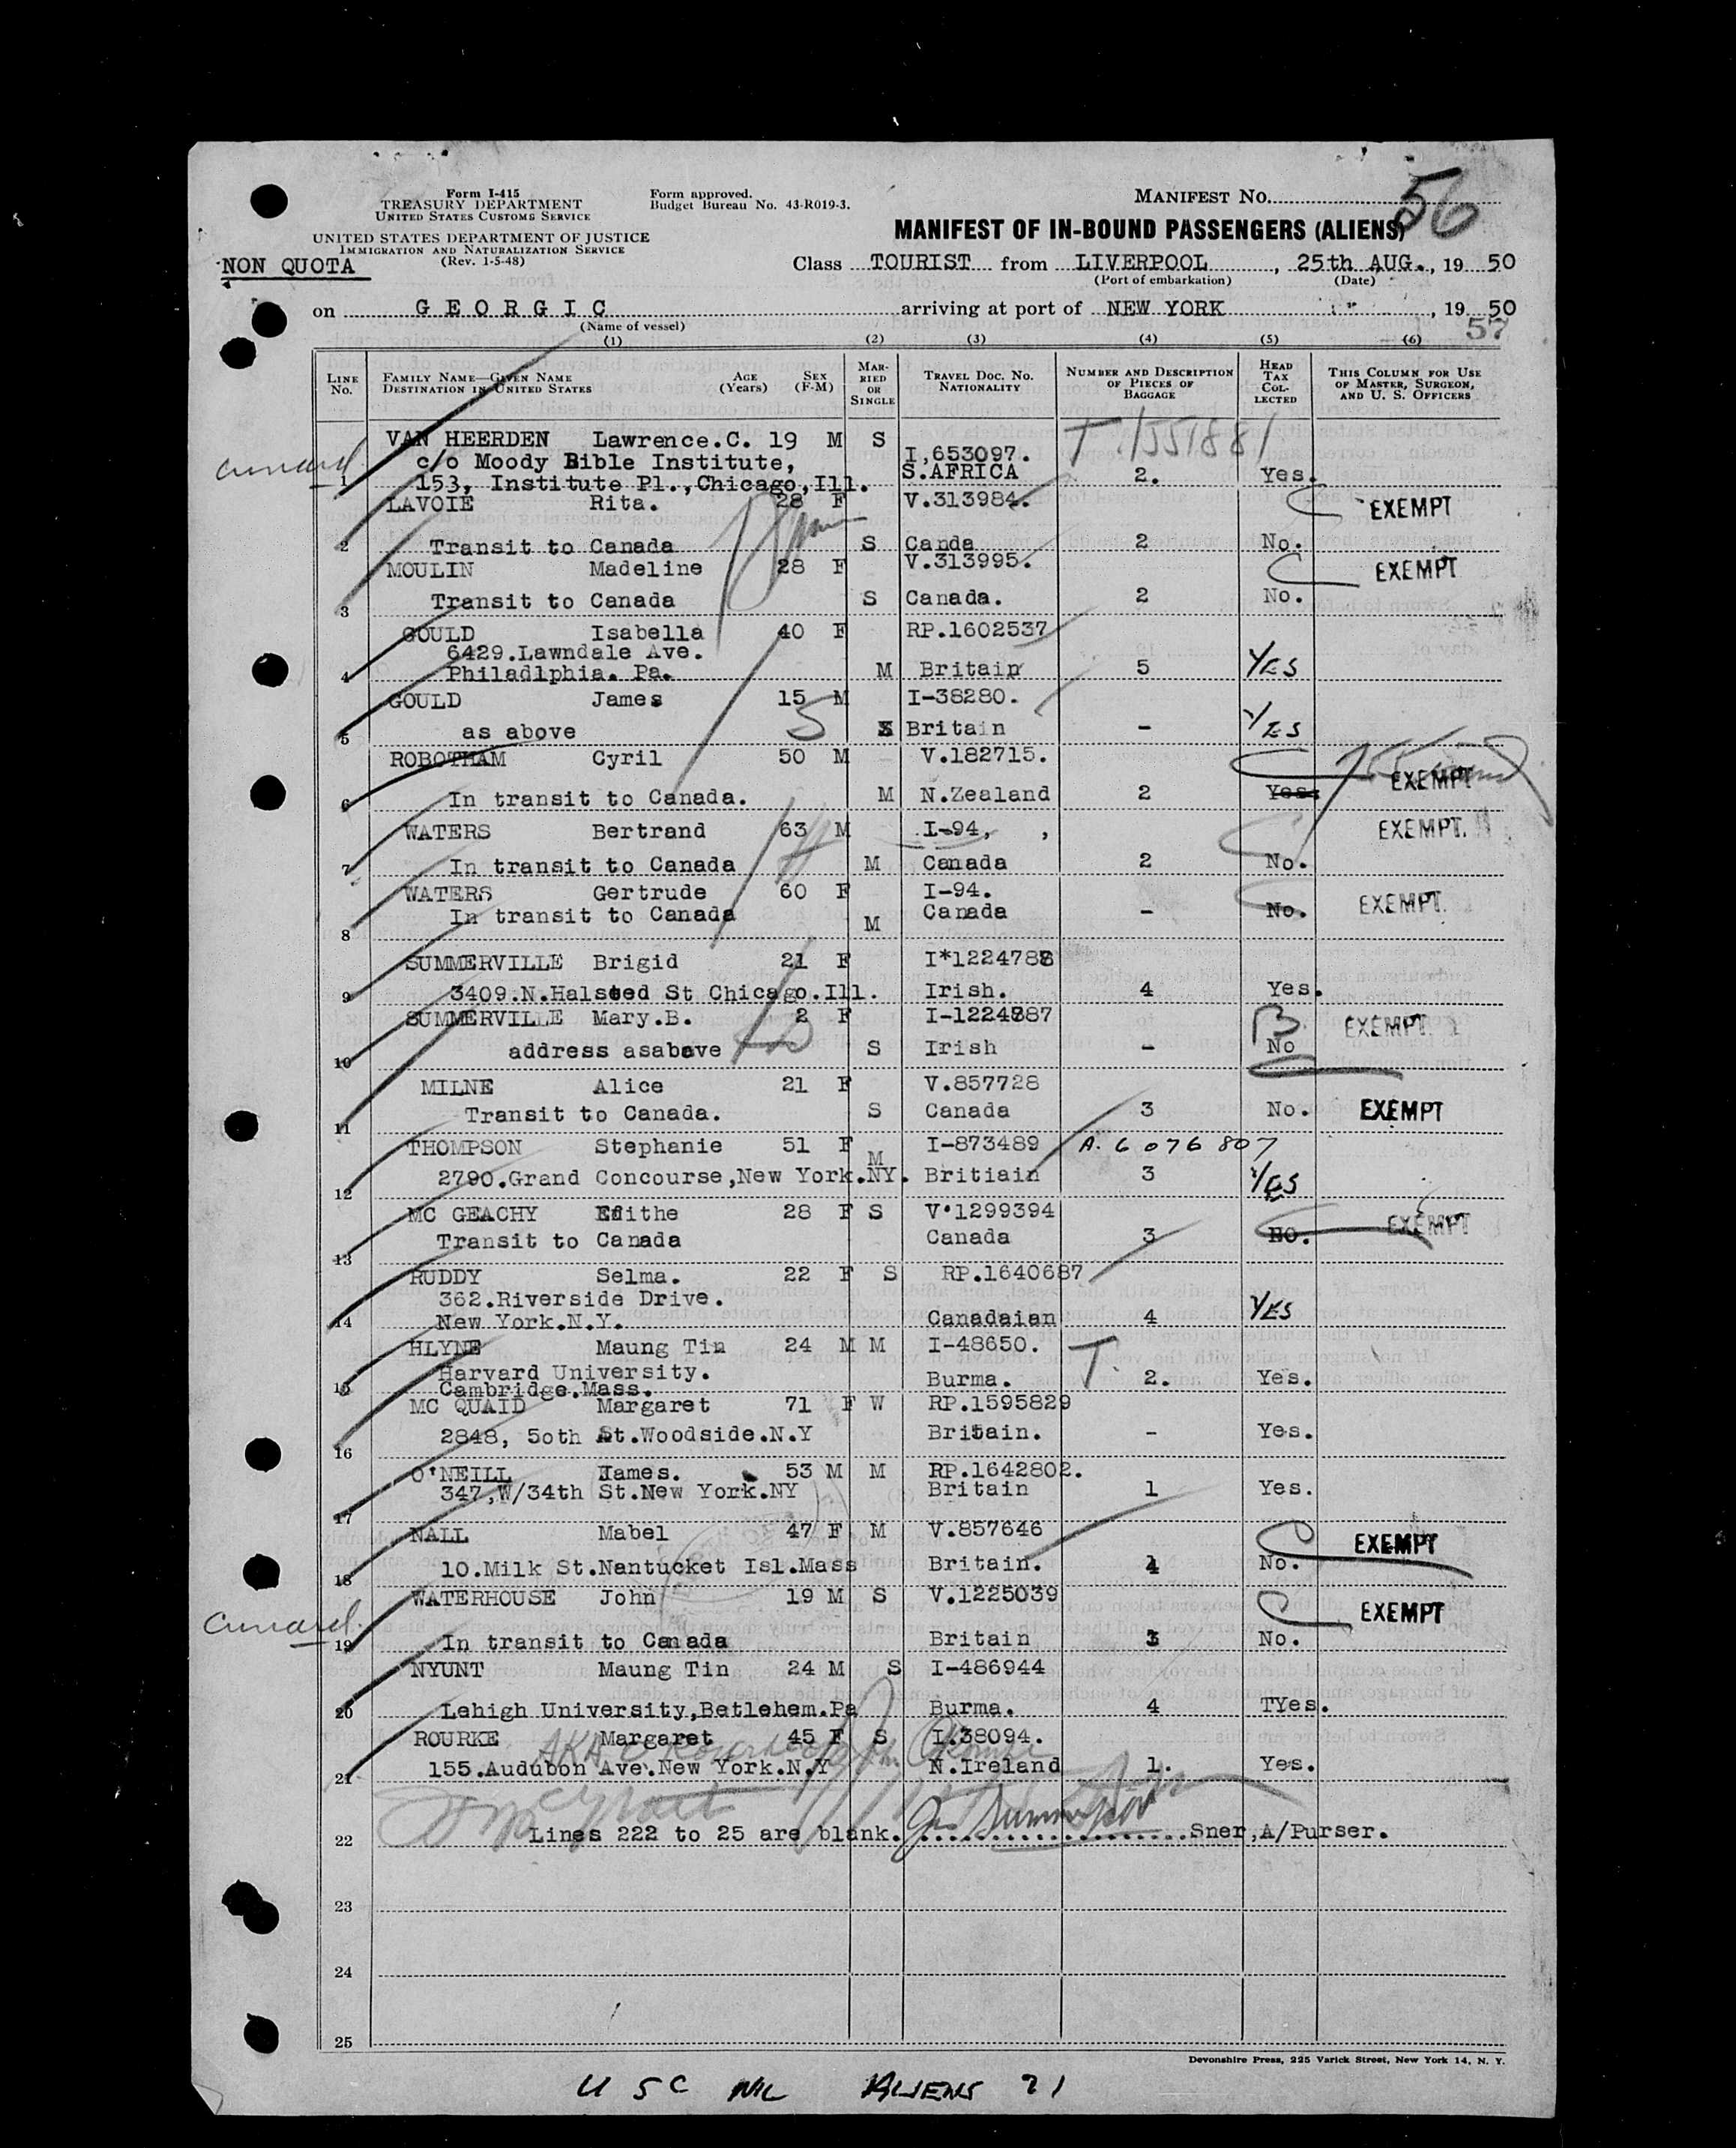 Form I-415
TREASURY DEPARTMENT
UNITED STATES CUSTOMS SERVICE
Form approved.
Budget Bureau No. 43-R019-3.
MANIFEST No. 56
UNITED STATES DEPARTMENT OF JUSTICE
IMMIGRATION AND NATURALIZATION SERVICE
(Rev. 1-5-48)
MANIFEST OF IN-BOUND PASSENGERS (ALIENS)
NON QUOTA
Class TOURIST from LIVERPOOL, 25th AUG., 1950
(Port of embarkation) (Date)
on GEORGIC arriving at port of NEW YORK, 1950
(Name of vessel)
57
(1) (2) (3) (4) (5) (6)
LINE No. FAMILY NAME—GIVEN NAME DESTINATION IN UNITED STATES AGE (Years) SEX (F-M) MARRIED OR SINGLE TRAVEL DOC. NO. NATIONALITY NUMBER AND DESCRIPTION OF PIECES OF BAGGAGE HEAD TAX COLLECTED THIS COLUMN FOR USE OF MASTER, SURGEON, AND U. S. OFFICERS
VAN HEERDEN Lawrence.C. 19 M S I,653097. T-1551881
Cunard c/o Moody Bible Institute, S.AFRICA
1 153, Institute Pl.,Chicago,Ill. 2. Yes.
LAVOIE Rita. 28 F V.313984. EXEMPT
2 Transit to Canada S Canda 2 No.
MOULIN Madeline 28 F V.313995. EXEMPT
3 Transit to Canada S Canada. 2 No.
GOULD Isabella 40 F RP.1602537
6429.Lawndale Ave.
4 Philadlphia. Pa. M Britain 5 YES
GOULD James 15 M I-38280.
5 as above 5 S Britain - YES
ROBOTHAM Cyril 50 M V.182715. EXEMPT
6 In transit to Canada. M N.Zealand 2 Yes.
WATERS Bertrand 63 M I-94, , EXEMPT.
7 In transit to Canada M Canada 2 No.
WATERS Gertrude 60 F I-94. EXEMPT.
8 In transit to Canada M Canada - No.
SUMMERVILLE Brigid 21 F I*1224788
9 3409.N.Halsted St Chicago.Ill. Irish. 4 Yes.
SUMMERVILLE Mary.B. 2 F I-1224887 EXEMPT.
10 address asabove S Irish - No
MILNE Alice 21 F V.857728
11 Transit to Canada. S Canada 3 No. EXEMPT
THOMPSON Stephanie 51 F M I-873489 A. 6076807
12 2790.Grand Concourse,New York.NY. Britiain 3 YES
MC GEACHY Edithe 28 F S V.1299394 EXEMPT
13 Transit to Canada Canada 3 NO.
RUDDY Selma. 22 F S RP.1640687
362.Riverside Drive.
14 New York.N.Y. Canadaian 4 YES
HLYNE Maung Tin 24 M M I-48650. T
Harvard University.
15 Cambridge.Mass. Burma. 2. Yes.
MC QUAID Margaret 71 F W RP.1595829
16 2848, 5oth St.Woodside.N.Y Britain. - Yes.
O'NEILL James. 53 M M RP.1642802.
17 347,W/34th St.New York.NY Britain 1 Yes.
NALL Mabel 47 F M V.857646 EXEMPT
18 10.Milk St.Nantucket Isl.Mass Britain. 4 No.
WATERHOUSE John 19 M S V.1225039 EXEMPT
Cunard 19 In transit to Canada Britain 3 No.
NYUNT Maung Tin 24 M S I-486944
20 Lehigh University,Betlehem.Pa Burma. 4 TYes.
ROURKE Margaret 45 F S I.38094.
AKA
21 155.Audubon Ave.New York.N.Y N.Ireland 1. Yes.
22 Lines 222 to 25 are blank. Sner,A/Purser.
23
24
25
Devonshire Press, 225 Varick Street, New York 14, N. Y.
USC NIL ALIENS 21